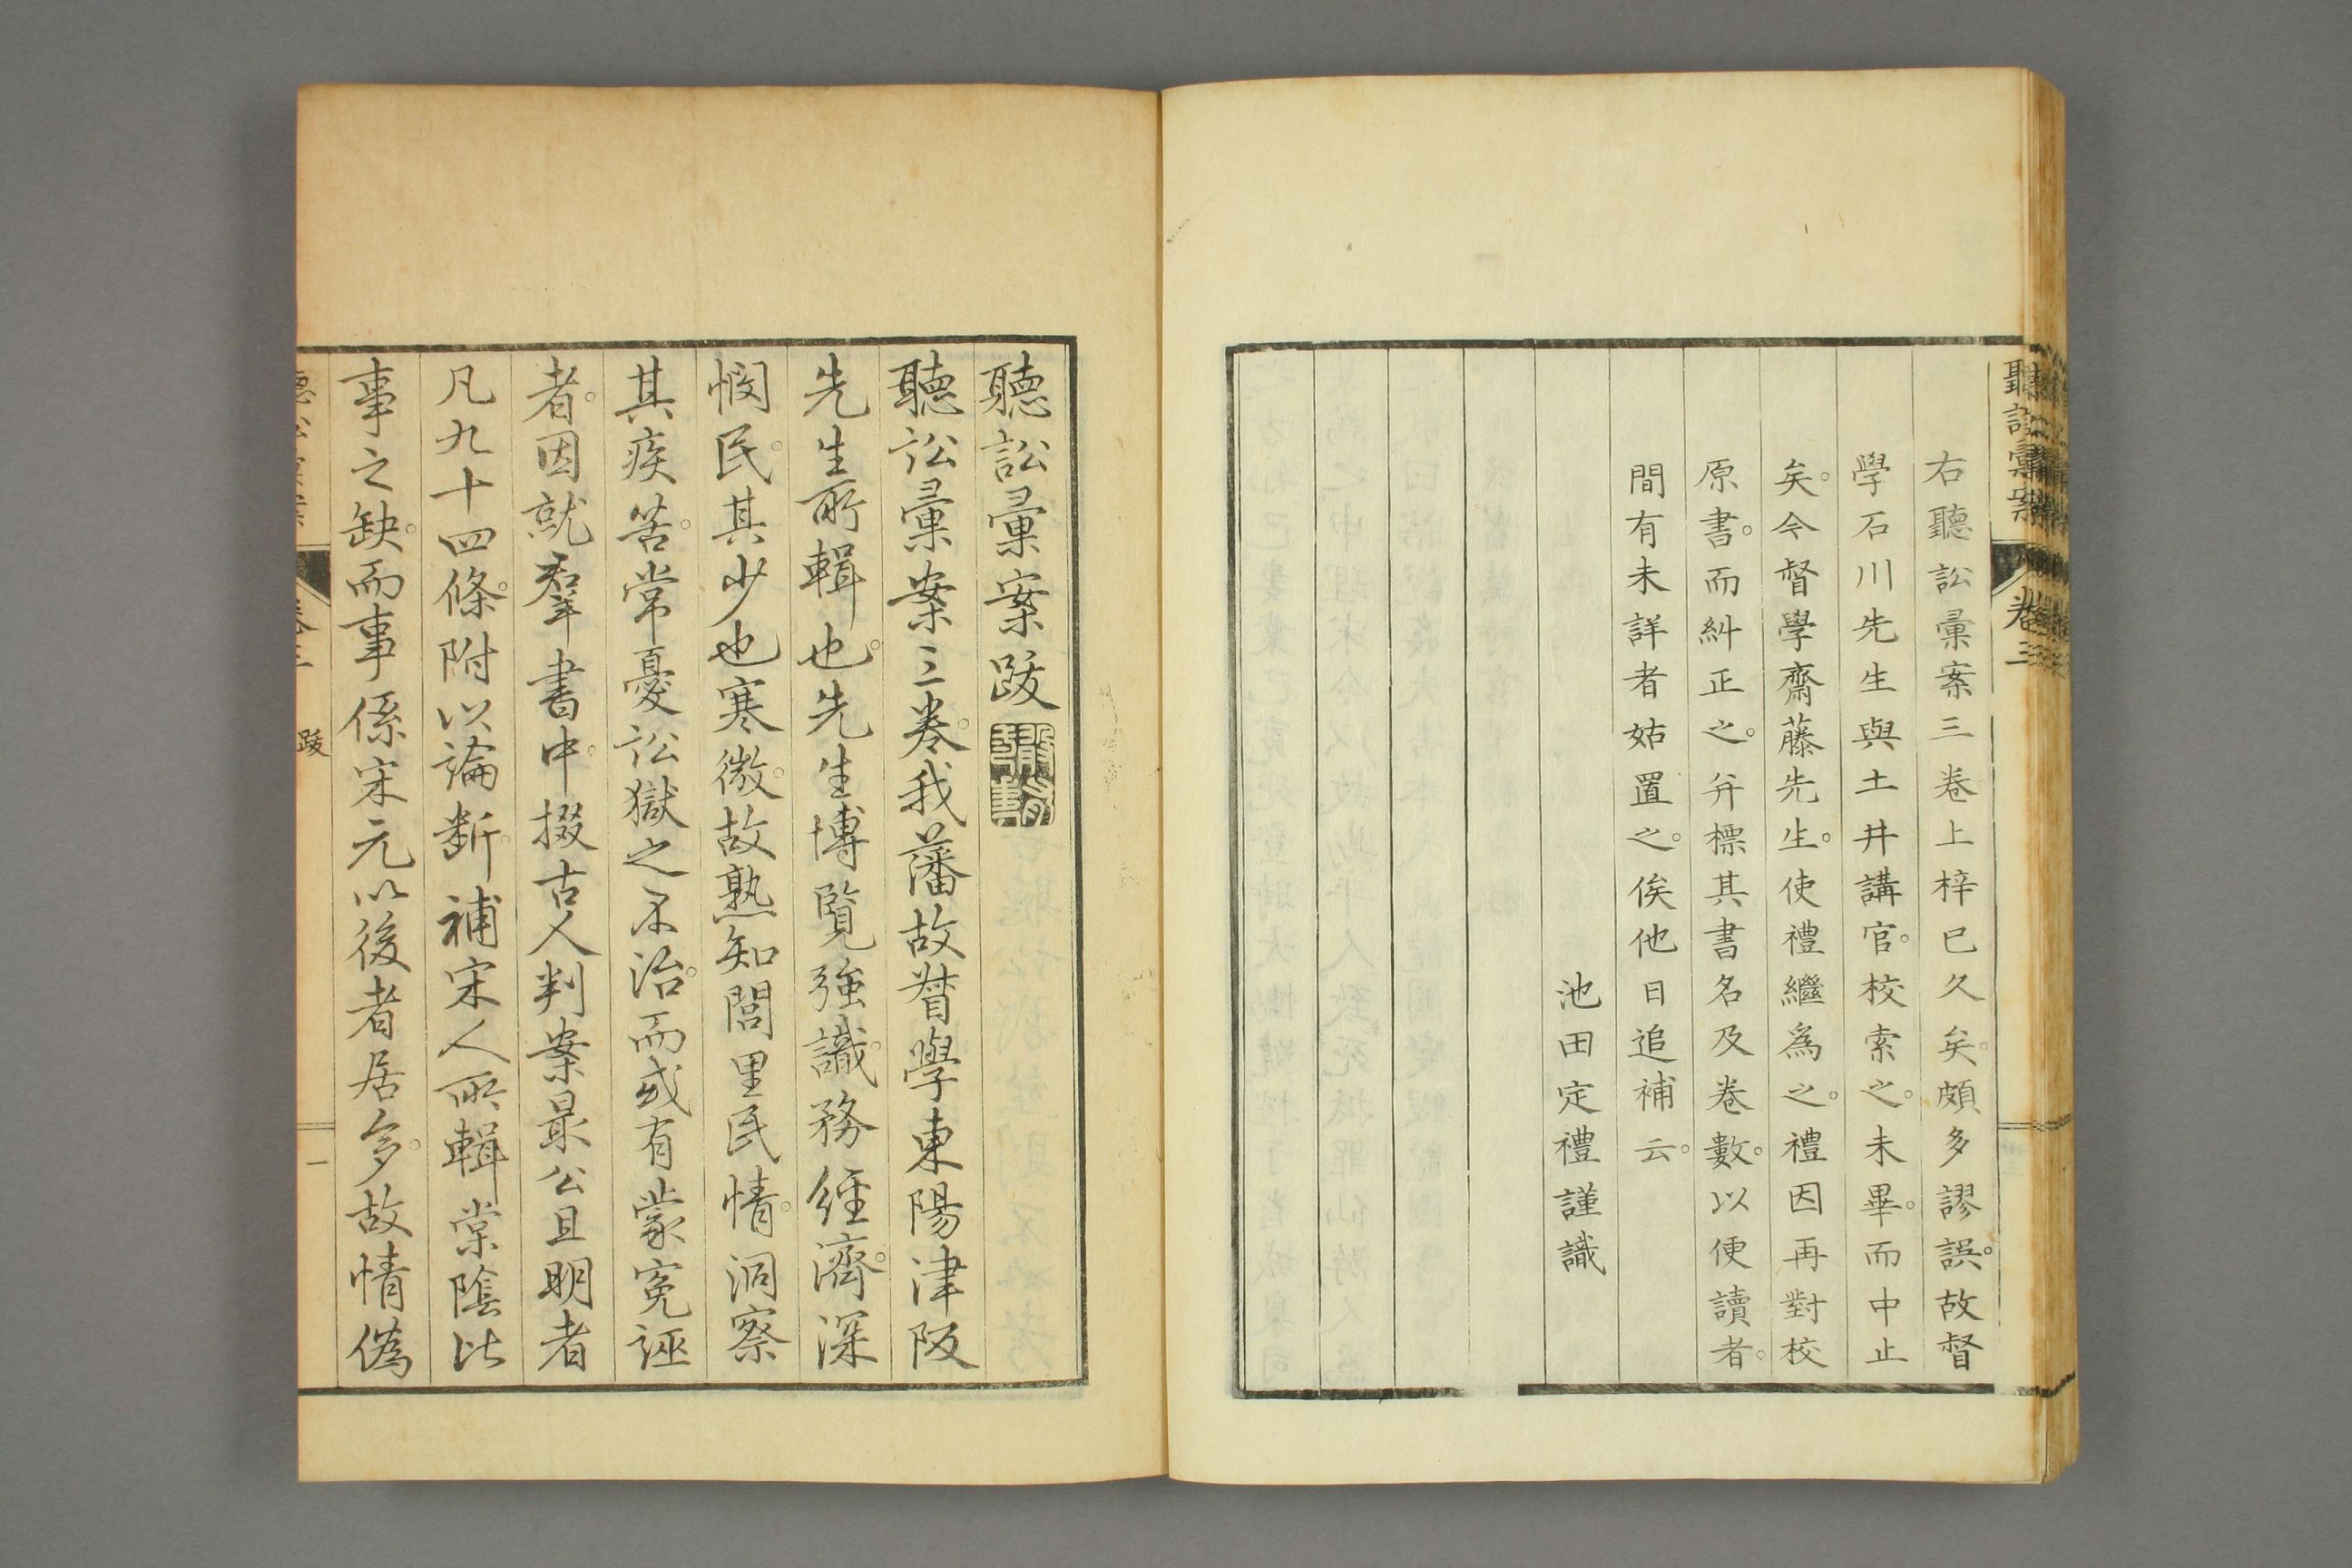 聽訟彙案 卷三
右聽訟彙案三卷上梓已久矣。頗多謬誤。故督
學石川先生與土井講官。校索之。未畢。而中止
矣。今督學齋藤先生。使禮繼為之。禮因再對校
原書。而糾正之。弁標其書名及卷數。以便讀者。
間有未詳者姑置之。俟他日追補云。
池田定禮謹識
聽訟彙案跋
聽訟彙案三卷。我藩故督學東陽津阪
先生所輯也。先生博覽強識。務經濟。深
憫民。其少也寒微。故熟知閭里民情。洞察
其疾苦。常憂訟獄之不治。而或有蒙冤誣
者。因就羣書中。掇古人判案最公且明者
凡九十四條。附以論斷。補宋人所輯棠陰比
事之缺。而事係宋元以後者居多。故情偽
跋 一